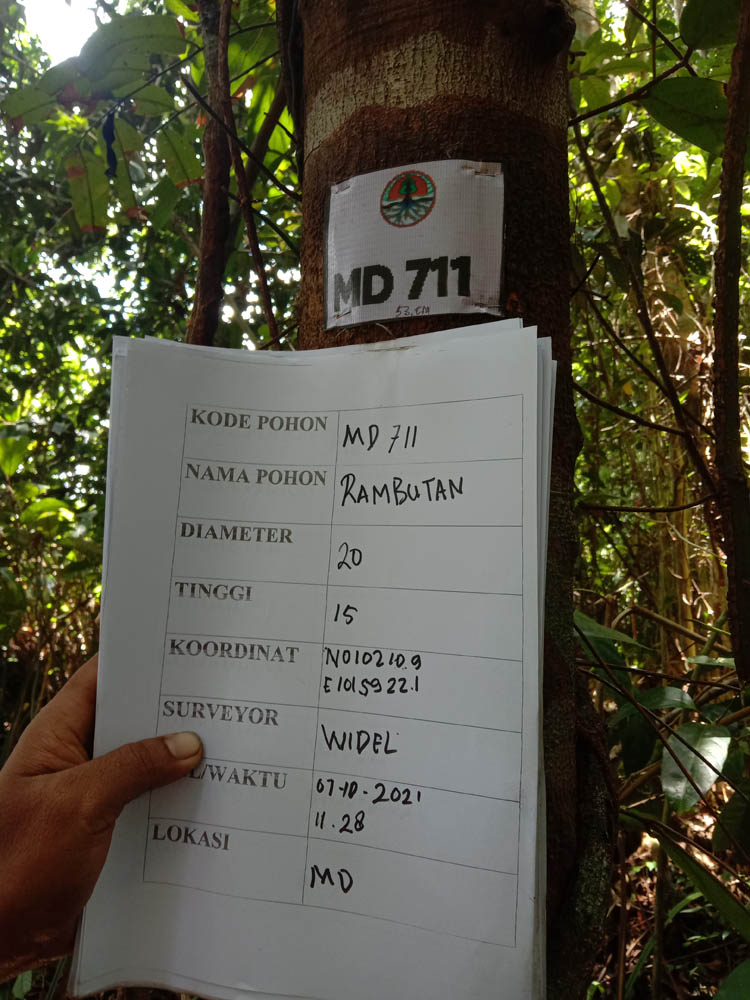 MD 711
53, CM
KODE POHON MD 711
NAMA POHON RAMBUTAN
DIAMETER 20
TINGGI 15
KOORDINAT N010210.9
E1015922.1
SURVEYOR WIDEL
L/WAKTU 07-10-2021
11.28
LOKASI MD